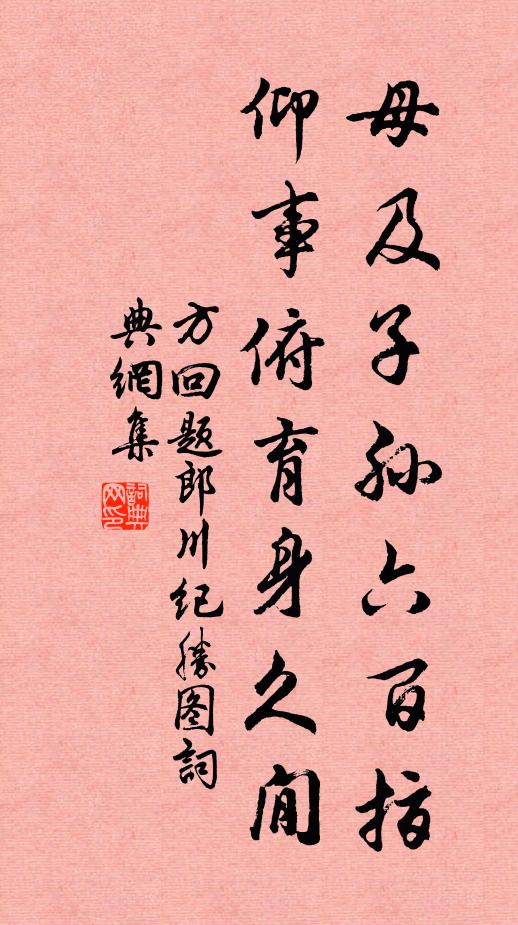 母及子孙六百指
仰事俯育身久闲
方回题郎川纪胜图词
典網集
詞典網印